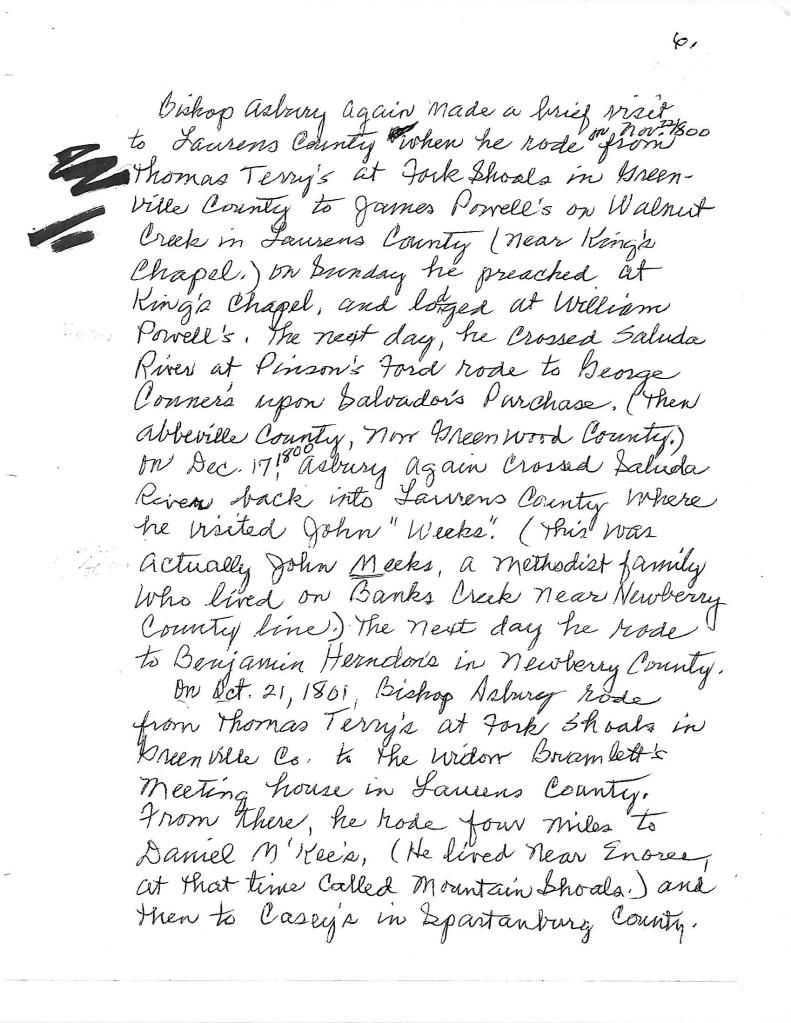 6.
Bishop Asbury again made a brief visit
to Laurens County when he rode on Nov. 22, 1800 from
Thomas Terry's at Fork Shoals in Green-
ville County to James Powell's on Walnut
Creek in Laurens County (near King's
Chapel.) On Sunday he preached at
King's Chapel, and lodged at William
Powell's. The next day, he crossed Saluda
River at Pinson's Ford rode to George
Conner's upon Salvador's Purchase. (Then
Abbeville County, now Greenwood County.)
On Dec. 17, 1800 Asbury again crossed Saluda
River back into Laurens County where
he visited John "Weeks". (This was
actually John Meeks, a Methodist family
who lived on Banks Creek near Newberry
County line.) The next day he rode
to Benjamin Herndon's in Newberry County.
On Oct. 21, 1801, Bishop Asbury rode
from Thomas Terry's at Fork Shoals in
Greenville Co. to the widow Bramlett's
Meeting house in Laurens County.
From there, he rode four miles to
Daniel M'Kee's, (He lived near Enoree,
at that time called Mountain Shoals.) and
then to Casey's in Spartanburg County.